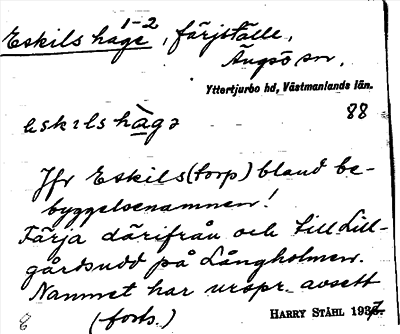 1-2
Eskils hage, färjställe,
Ängsö sn.
Yttertjurbo hd, Västmanlands län.
88
Jfr Eskils(torp) bland be-
byggelsenamnen!
Färja därifrån och till Lill-
gårdsudd på Långholmen.
Namnet har urspr. avsett
(forts.)
HARRY STÅHL 1937.